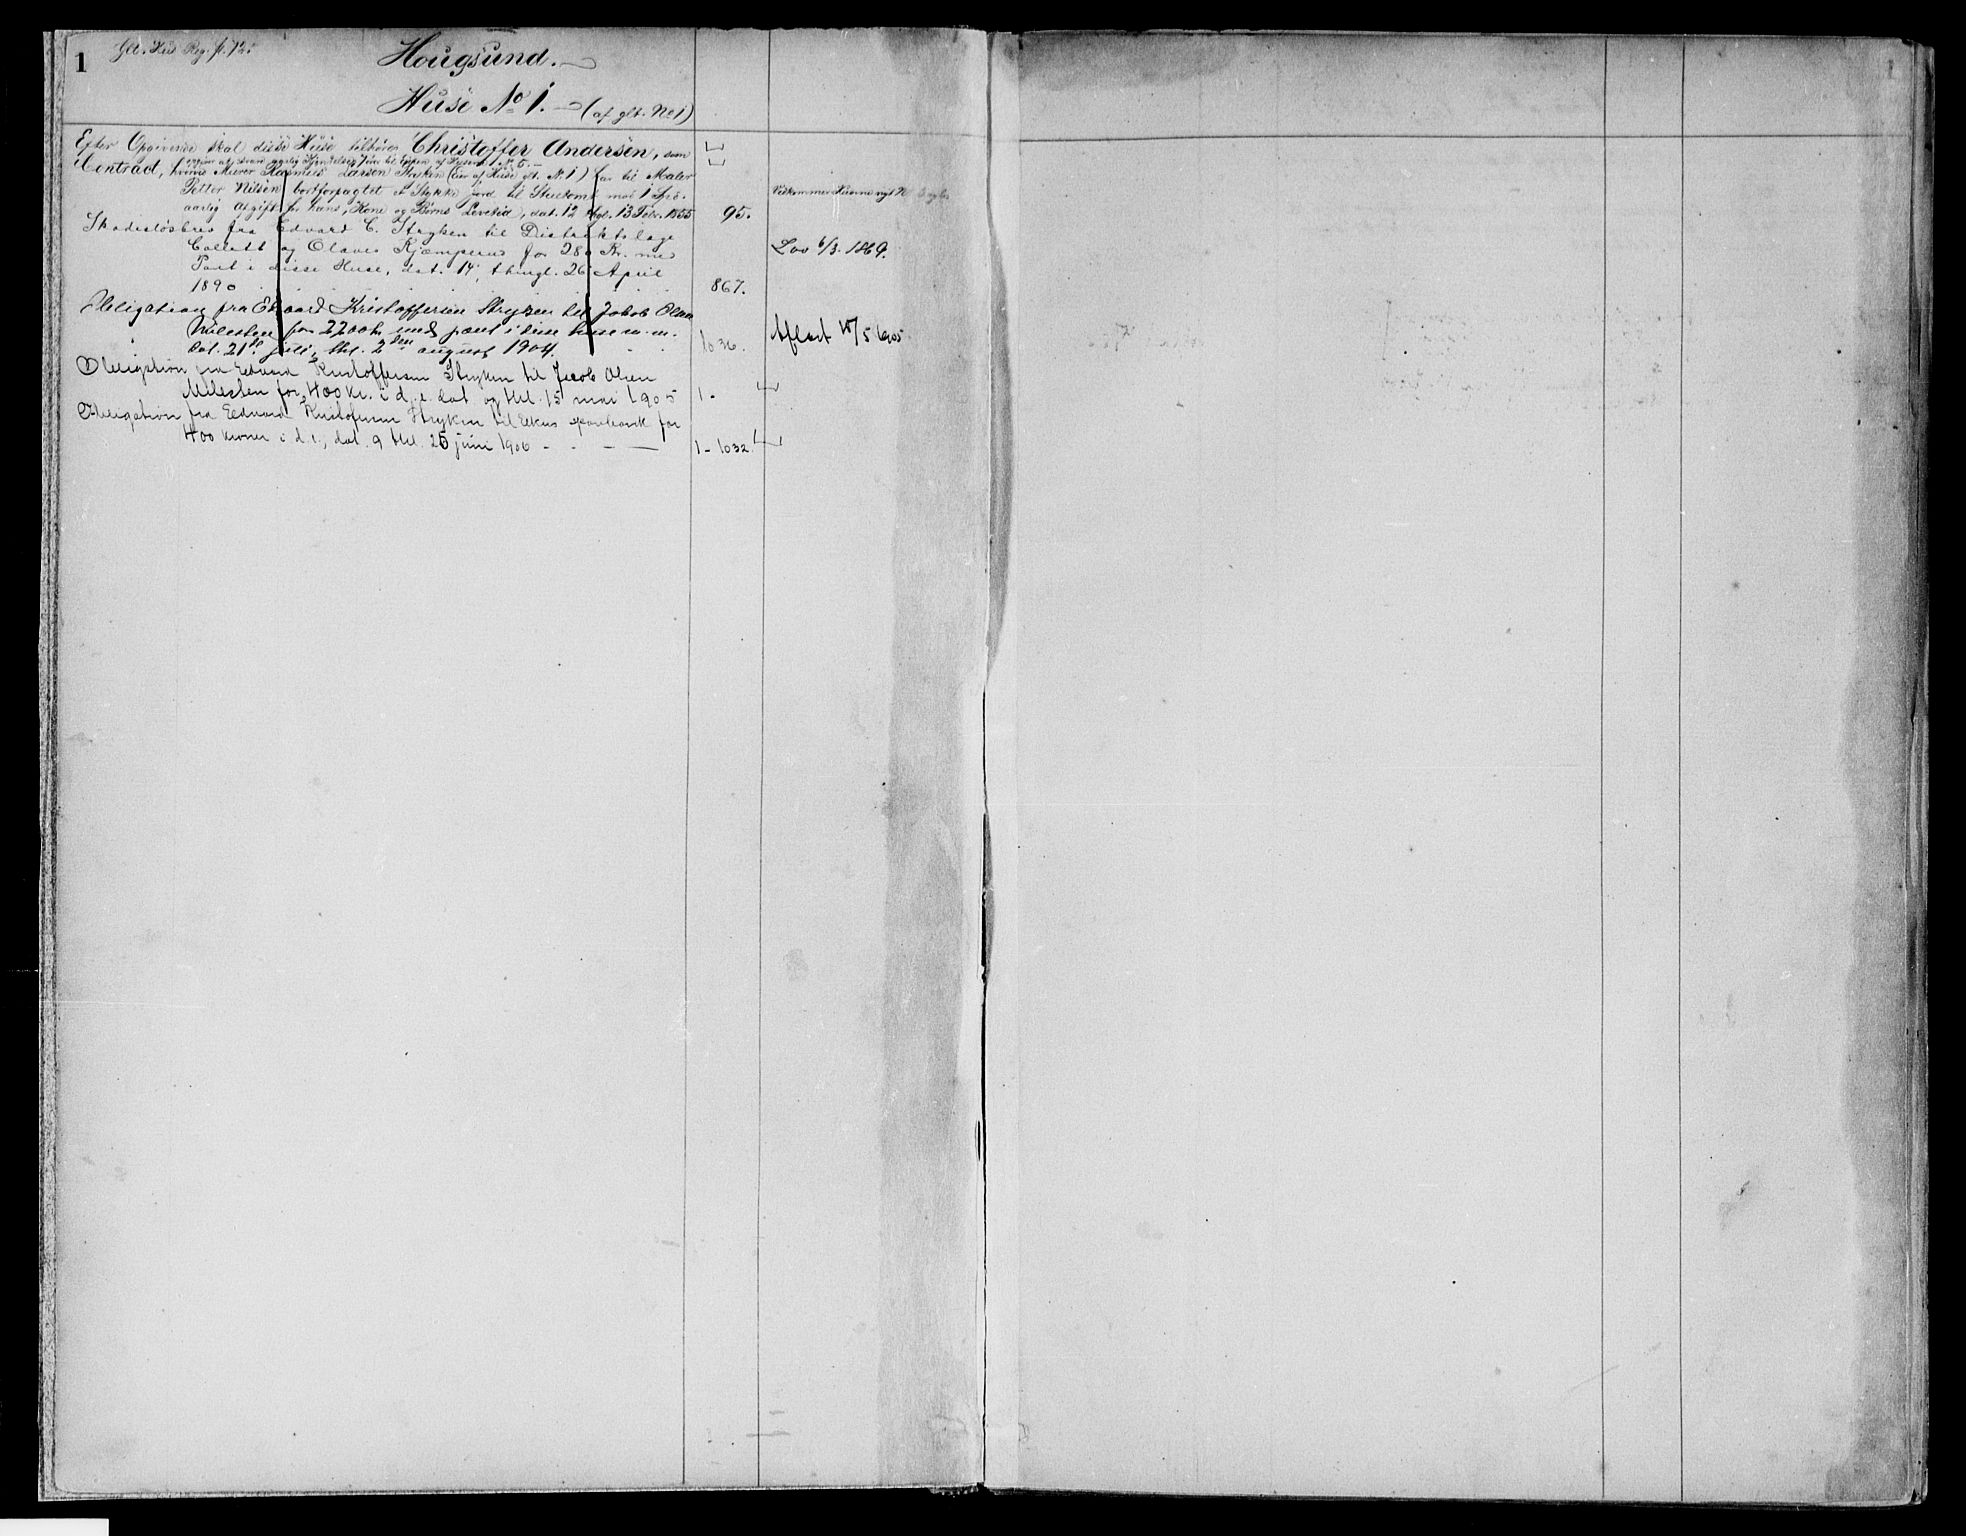 1 Glt. Hus Reg. p. 72.
Hougsund.
Huse No 1. (af glt. No 1)
Efter Opgivende skal disse Huse tilhøre Christoffer Andersen, som
Contract, hvorved Murer Rasmus Larsen Stryken (Eier af Huse glt. No 1) har til Maler
Petter Nilsen bortforpagtet et Stykke Jord til Huustomt mod 1 Spd.
aarlig Afgift for hans, Kone og Børns Levetid, dat. 12 thgl. 13 Febr. 1855 95.
Vedkommer Husene nyt No
Skadesløsbrev fra Edvard C. Stryken til Distriktslæge
Collett og Olaves Kjæmperud for 280 Kr. med
Lov 6/3. 1869.
Pant i disse Huse, dat. 14, thingl. 26 April
1890 867.
Obligation fra Edvard Kristoffersen Stryken til Jakob Olsen
Milesten for 2200 kr med pant i disse huse m.m.
Dat. 21de juli, thl. 2den august 1904. 1036.
Aflæst 15/5 1905
Obligation fra Edvard Kristoffersen Stryken til Jacob Olsen
Milesten for 400 kr. i d. e. dat og thl. 15 mai 1905 1 -
Obligation fra Edvard Kristoffersen Stryken til Eikers sparebank for
400 kroner i d. e., dat. 9 thl. 25 juni 1906 - - - 1 - 1032.